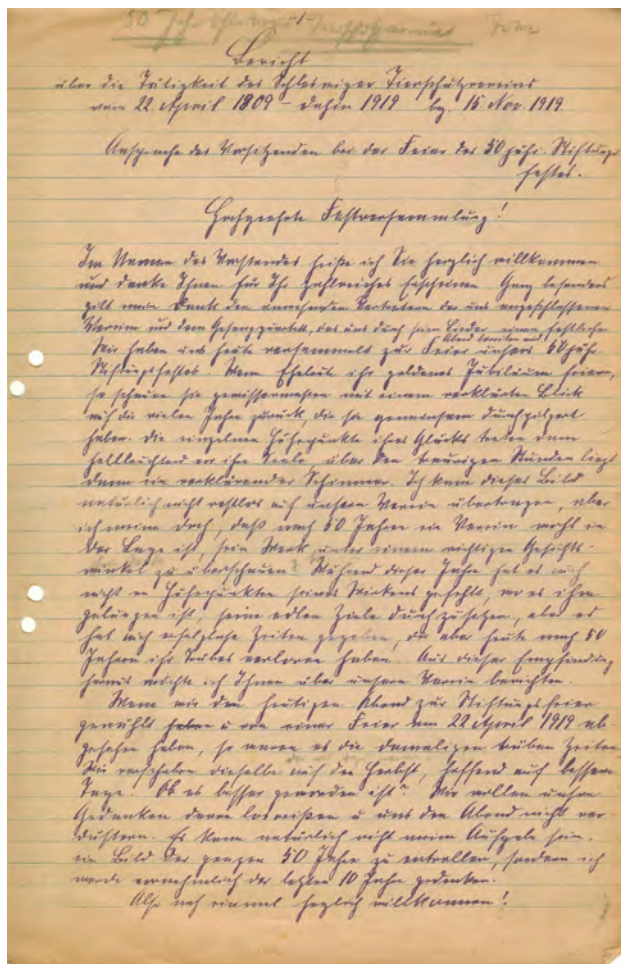 50 Jahr Schleswiger Tierschutzverein
Bericht
über die Tätigkeit des Schleswiger Tierschutzvereins
vom 22 April 1809 - dahin 1919 bz. 15 Nov. 1919.
Ansprache des Vorsitzenden bei der Feier des 50 jähr. Stiftungs-
festes.
Hochgeehrte Festversammlung!
Im Namen des Vorstandes heiße ich Sie herzlich willkommen
und danke Ihnen für Ihr zahlreiches Erscheinen Ganz besonders
gilt mein Dank den anwesenden Vertretern der uns angeschlossenen
Vereine und dem Gesangquartett, das uns durch seine Lieder einen festlichen
Abend bereiten wird.
Wir haben uns heute versammelt zur Feier unsers 50 jähr.
Stiftungsfestes. Wenn Eheleute ihr goldenes Jubiläum feiern,
so schauen sie gewissermaßen mit einem verklärten Blick
auf die vielen Jahre zurück, die sie gemeinsam durchpilgert
haben. Die einzelnen Höhepunkte ihres Glücks treten dann
hellleuchtend vor ihre Seele über den traurigen Stunden liegt
dann ein verklärender Schimmer. Ich kann dieses Bild
natürlich nicht restlos auf unsern Verein übertragen, aber
ich meine doch, daß nach 50 Jahren ein Verein wohl in
der Lage ist, sein Werk unter einem richtigen Gesichts-
winkel zu überschauen. Während dieser Jahre hat es auch
nicht an Höhepunkten seines Wirkens gefehlt, wo es ihm
gelungen ist, seine edlen Ziele durchzusetzen, aber es
hat auch erfolglose Zeiten gegeben, die aber heute nach 50
Jahren ihr Trübes verloren haben. Aus dieser Empfindung
heraus möchte ich Ihnen über unsern Verein berichten.
Wenn wir den heutigen Abend zur Stiftungsfeier
gewählt haben u von einer Feier am 22 April 1919 ab-
gesehen haben, so waren es die damaligen trüben Zeiten
Wir verschoben dieselbe auf den Herbst, hoffend auf bessere
Tage. Ob es besser geworden ist? Wir wollen unsre
Gedanken davon losreißen u uns den Abend nicht ver-
düstern. Es kann natürlich nicht meine Aufgabe sein,
ein Bild der ganzen 50 Jahre zu entrollen, sondern ich
werde vornehmlich der letzten 10 Jahre gedenken.
Also noch einmal herzlich willkommen!